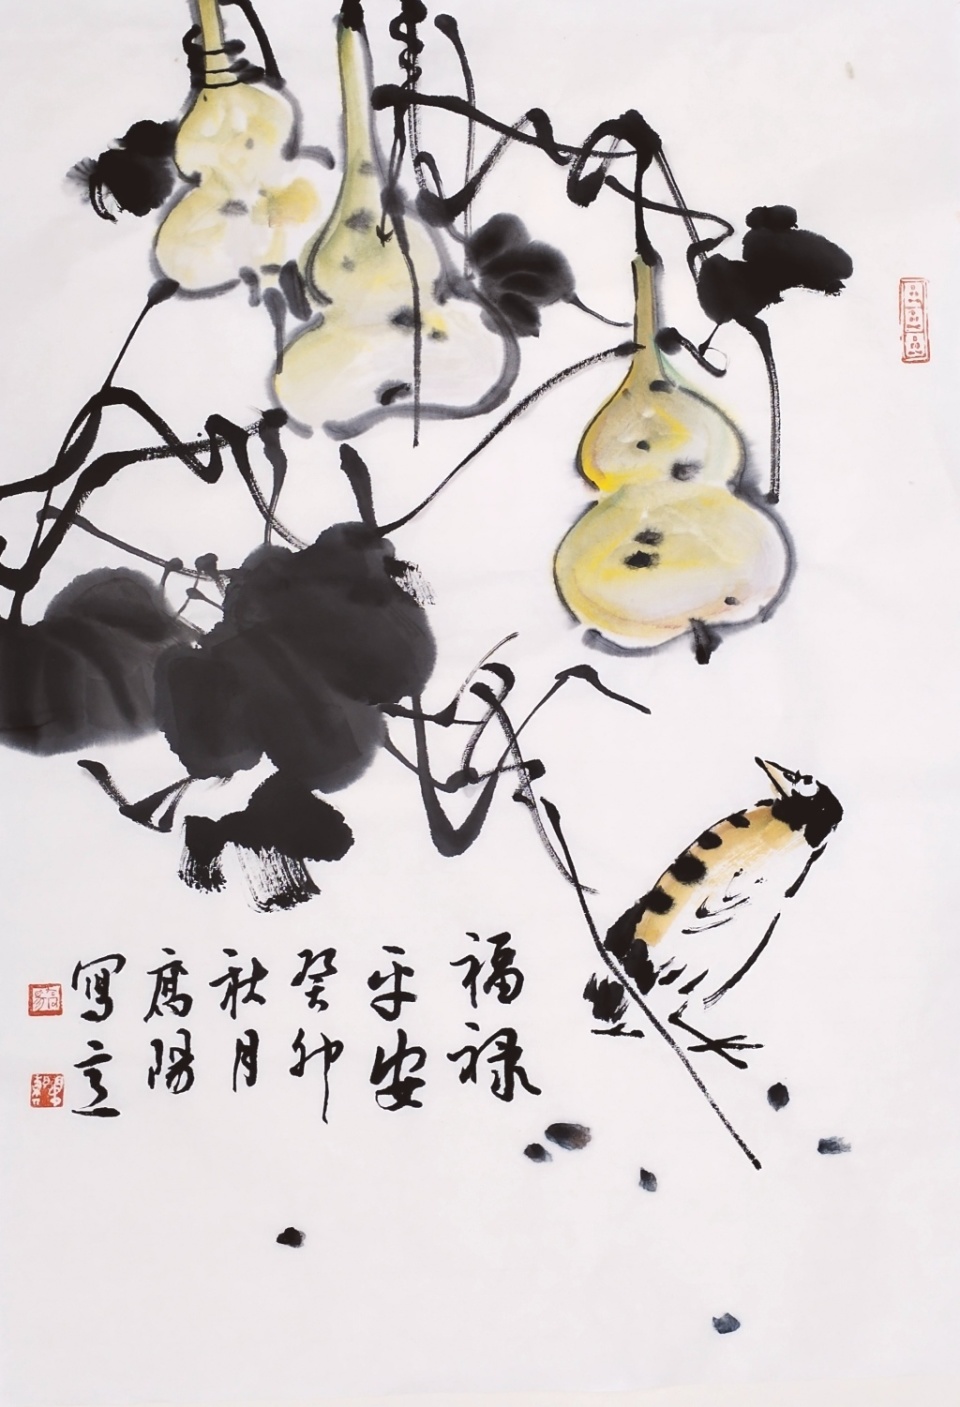 福禄
平安
癸卯
秋月
陽
寫